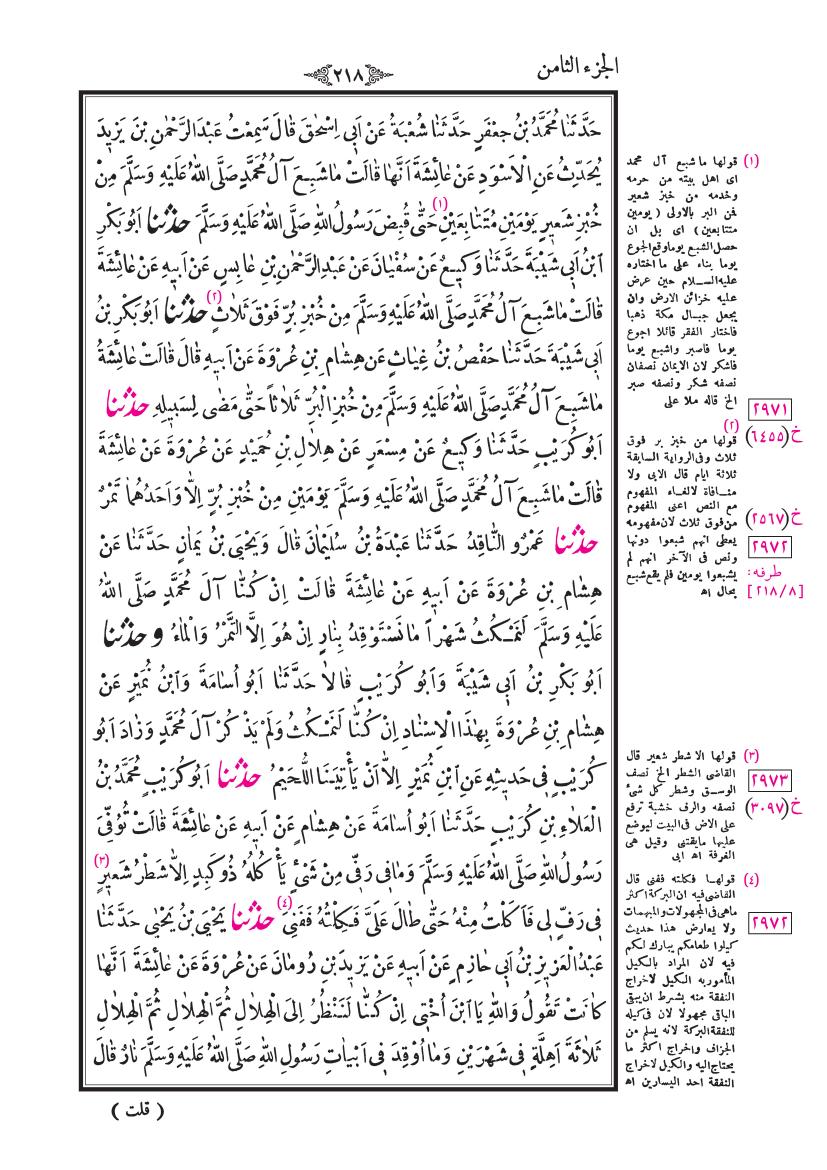 الجزء الثامن
٢١٨
حَدَّثَنَا مُحَمَّدُ بْنُ جَعْفَرٍ حَدَّثَنَا شُعْبَةُ عَنْ اَبِى اِسْحٰقَ قَالَ سَمِعْتُ عَبْدَ الرَّحْمٰنِ بْنَ يَزِيدَ
يُحَدِّثُ عَنِ الْاَسْوَدِ عَنْ عَائِشَةَ اَنَّهَا قَالَتْ مَا شَبِعَ آلُ مُحَمَّدٍ صَلَّى اللّٰهُ عَلَيْهِ وَسَلَّمَ مِنْ
خُبْزِ شَعِيرٍ يَوْمَيْنِ مُتَتَابِعَيْنِ (١) حَتّٰى قُبِضَ رَسُولُ اللّٰهِ صَلَّى اللّٰهُ عَلَيْهِ وَسَلَّمَ حذثنا اَبُو بَكْرِ
ابْنُ اَبِى شَيْبَةَ حَدَّثَنَا وَكِيعٌ عَنْ سُفْيَانَ عَنْ عَبْدِ الرَّحْمٰنِ بْنِ عَابِسٍ عَنْ اَبِيهِ عَنْ عَائِشَةَ
قَالَتْ مَا شَبِعَ آلُ مُحَمَّدٍ صَلَّى اللّٰهُ عَلَيْهِ وَسَلَّمَ مِنْ خُبْزِ بُرٍّ فَوْقَ ثَلَاثٍ (٢) حذثنا اَبُو بَكْرِ بْنُ
اَبِى شَيْبَةَ حَدَّثَنَا حَفْصُ بْنُ غِيَاثٍ عَنْ هِشَامِ بْنِ عُرْوَةَ عَنْ اَبِيهِ قَالَ قَالَتْ عَائِشَةُ
مَا شَبِعَ آلُ مُحَمَّدٍ صَلَّى اللّٰهُ عَلَيْهِ وَسَلَّمَ مِنْ خُبْزِ الْبُرِّ ثَلَاثاً حَتّٰى مَضٰى لِسَبِيلِهِ حذثنا
اَبُو كُرَيْبٍ حَدَّثَنَا وَكِيعٌ عَنْ مِسْعَرٍ عَنْ هِلَالِ بْنِ حُمَيْدٍ عَنْ عُرْوَةَ عَنْ عَائِشَةَ
قَالَتْ مَا شَبِعَ آلُ مُحَمَّدٍ صَلَّى اللّٰهُ عَلَيْهِ وَسَلَّمَ يَوْمَيْنِ مِنْ خُبْزِ بُرٍّ اِلَّا وَاَحَدُهُمَا تَمْرٌ
حذثنا عَمْرٌو النَّاقِدُ حَدَّثَنَا عَبْدَةُ بْنُ سُلَيْمَانَ قَالَ وَيَحْيَى بْنُ يَمَانٍ حَدَّثَنَا عَنْ
هِشَامِ بْنِ عُرْوَةَ عَنْ اَبِيهِ عَنْ عَائِشَةَ قَالَتْ اِنْ كُنَّا آلَ مُحَمَّدٍ صَلَّى اللّٰهُ
عَلَيْهِ وَسَلَّمَ لَنَمْكُثُ شَهْراً مَا نَسْتَوْقِدُ بِنَارٍ اِنْ هُوَ اِلَّا التَّمْرُ وَالْمَاءُ وحذثنا
اَبُو بَكْرِ بْنُ اَبِى شَيْبَةَ وَاَبُو كُرَيْبٍ قَالَا حَدَّثَنَا اَبُو اُسَامَةَ وَابْنُ نُمَيْرٍ عَنْ
هِشَامِ بْنِ عُرْوَةَ بِهٰذَا الْاِسْنَادِ اِنْ كُنَّا لَنَمْكُثُ وَلَمْ يَذْكُرْ آلَ مُحَمَّدٍ وَزَادَ اَبُو
كُرَيْبٍ فِى حَدِيثِهِ عَنِ ابْنِ نُمَيْرٍ اِلَّا اَنْ يَأْتِيَنَا اللُّحَيْمُ حذثنا اَبُو كُرَيْبٍ مُحَمَّدُ بْنُ
الْعَلَاءِ بْنِ كُرَيْبٍ حَدَّثَنَا اَبُو اُسَامَةَ عَنْ هِشَامٍ عَنْ اَبِيهِ عَنْ عَائِشَةَ قَالَتْ تُوُفِّىَ
رَسُولُ اللّٰهِ صَلَّى اللّٰهُ عَلَيْهِ وَسَلَّمَ وَمَا فِى رَفِّى مِنْ شَىْءٍ يَأْكُلُهُ ذُو كَبِدٍ اِلَّا شَطْرُ شَعِيرٍ (٣)
فِى رَفٍّ لِى فَاَكَلْتُ مِنْهُ حَتّٰى طَالَ عَلَىَّ فَكِلْتُهُ فَفَنِىَ (٤) حذثنا يَحْيَى بْنُ يَحْيٰى حَدَّثَنَا
عَبْدُ الْعَزِيزِ بْنُ اَبِى حَازِمٍ عَنْ اَبِيهِ عَنْ يَزِيدَ بْنِ رُومَانَ عَنْ عُرْوَةَ عَنْ عَائِشَةَ اَنَّهَا
كَانَتْ تَقُولُ وَاللّٰهِ يَا ابْنَ اُخْتِى اِنْ كُنَّا لَنَنْظُرُ اِلَى الْهِلَالِ ثُمَّ الْهِلَالِ ثُمَّ الْهِلَالِ
ثَلَاثَةَ اَهِلَّةٍ فِى شَهْرَيْنِ وَمَا اُوقِدَ فِى اَبْيَاتِ رَسُولِ اللّٰهِ صَلَّى اللّٰهُ عَلَيْهِ وَسَلَّمَ نَارٌ قَالَ
( قلت )
(١) قولها ما شبع آل محمد
اى اهل بيته من حرمه
وخدمه من خبز شعير
فمن البر بالاولى ( يومين
متتابعين ) اى بل ان
حصل الشبع يوما وقع الجوع
يوما بناء على ما اختاره
عليه السلام حين عرض
عليه خزائن الارض وان
يجعل جبال مكة ذهبا
فاختار الفقر قائلا اجوع
يوما فاصبر واشبع يوما
فاشكر لان الايمان نصفان
نصفه شكر ونصفه صبر
الخ قاله ملا على
٢٩٧١
(٢)
خ (٦٤٥٥)
قولها من خبز بر فوق
ثلاث وفى الرواية السابقة
ثلاثة ايام قال الابى ولا
منافاة لالغاء المفهوم
مع النص اعنى المفهوم
من فوق ثلاث لان مفهومه
يعطى انهم شبعوا دونها
ونص فى الآخر انهم لم
يشبعوا يومين فلم يقع شبع
بحال اه
خ (٢٥٦٧)
٢٩٧٢
طرفه:
[٢١٨/٨]
(٣) قولها الا شطر شعير قال
القاضى الشطر الخ نصف
الوسق وشطر كل شئ
نصفه والرف خشبة ترفع
على الاض فى البيت ليوضع
عليها مايقتنى وقيل هى
الغوفة اه ابى
٢٩٧٣
خ (٣٠٩٧)
(٤) قولها فكلته ففنى قال
القاضى فيه ان البركة اكثر
ماهى فى المجهولات والمبهمات
ولا يعارض هذا حديث
كيلوا طعامكم يبارك لكم
فيه لان المراد بالكيل
المأموربه الكيل لاخراج
النفقة منه بشرط ان يبقى
الباقى مجهولا لان فى كيله
للنفقة البركة لانه يسلم من
الجزاف واخراج اكثر ما
يحتاج اليه والكيل لاخراج
النفقة احد اليسارين اه
٢٩٧٢